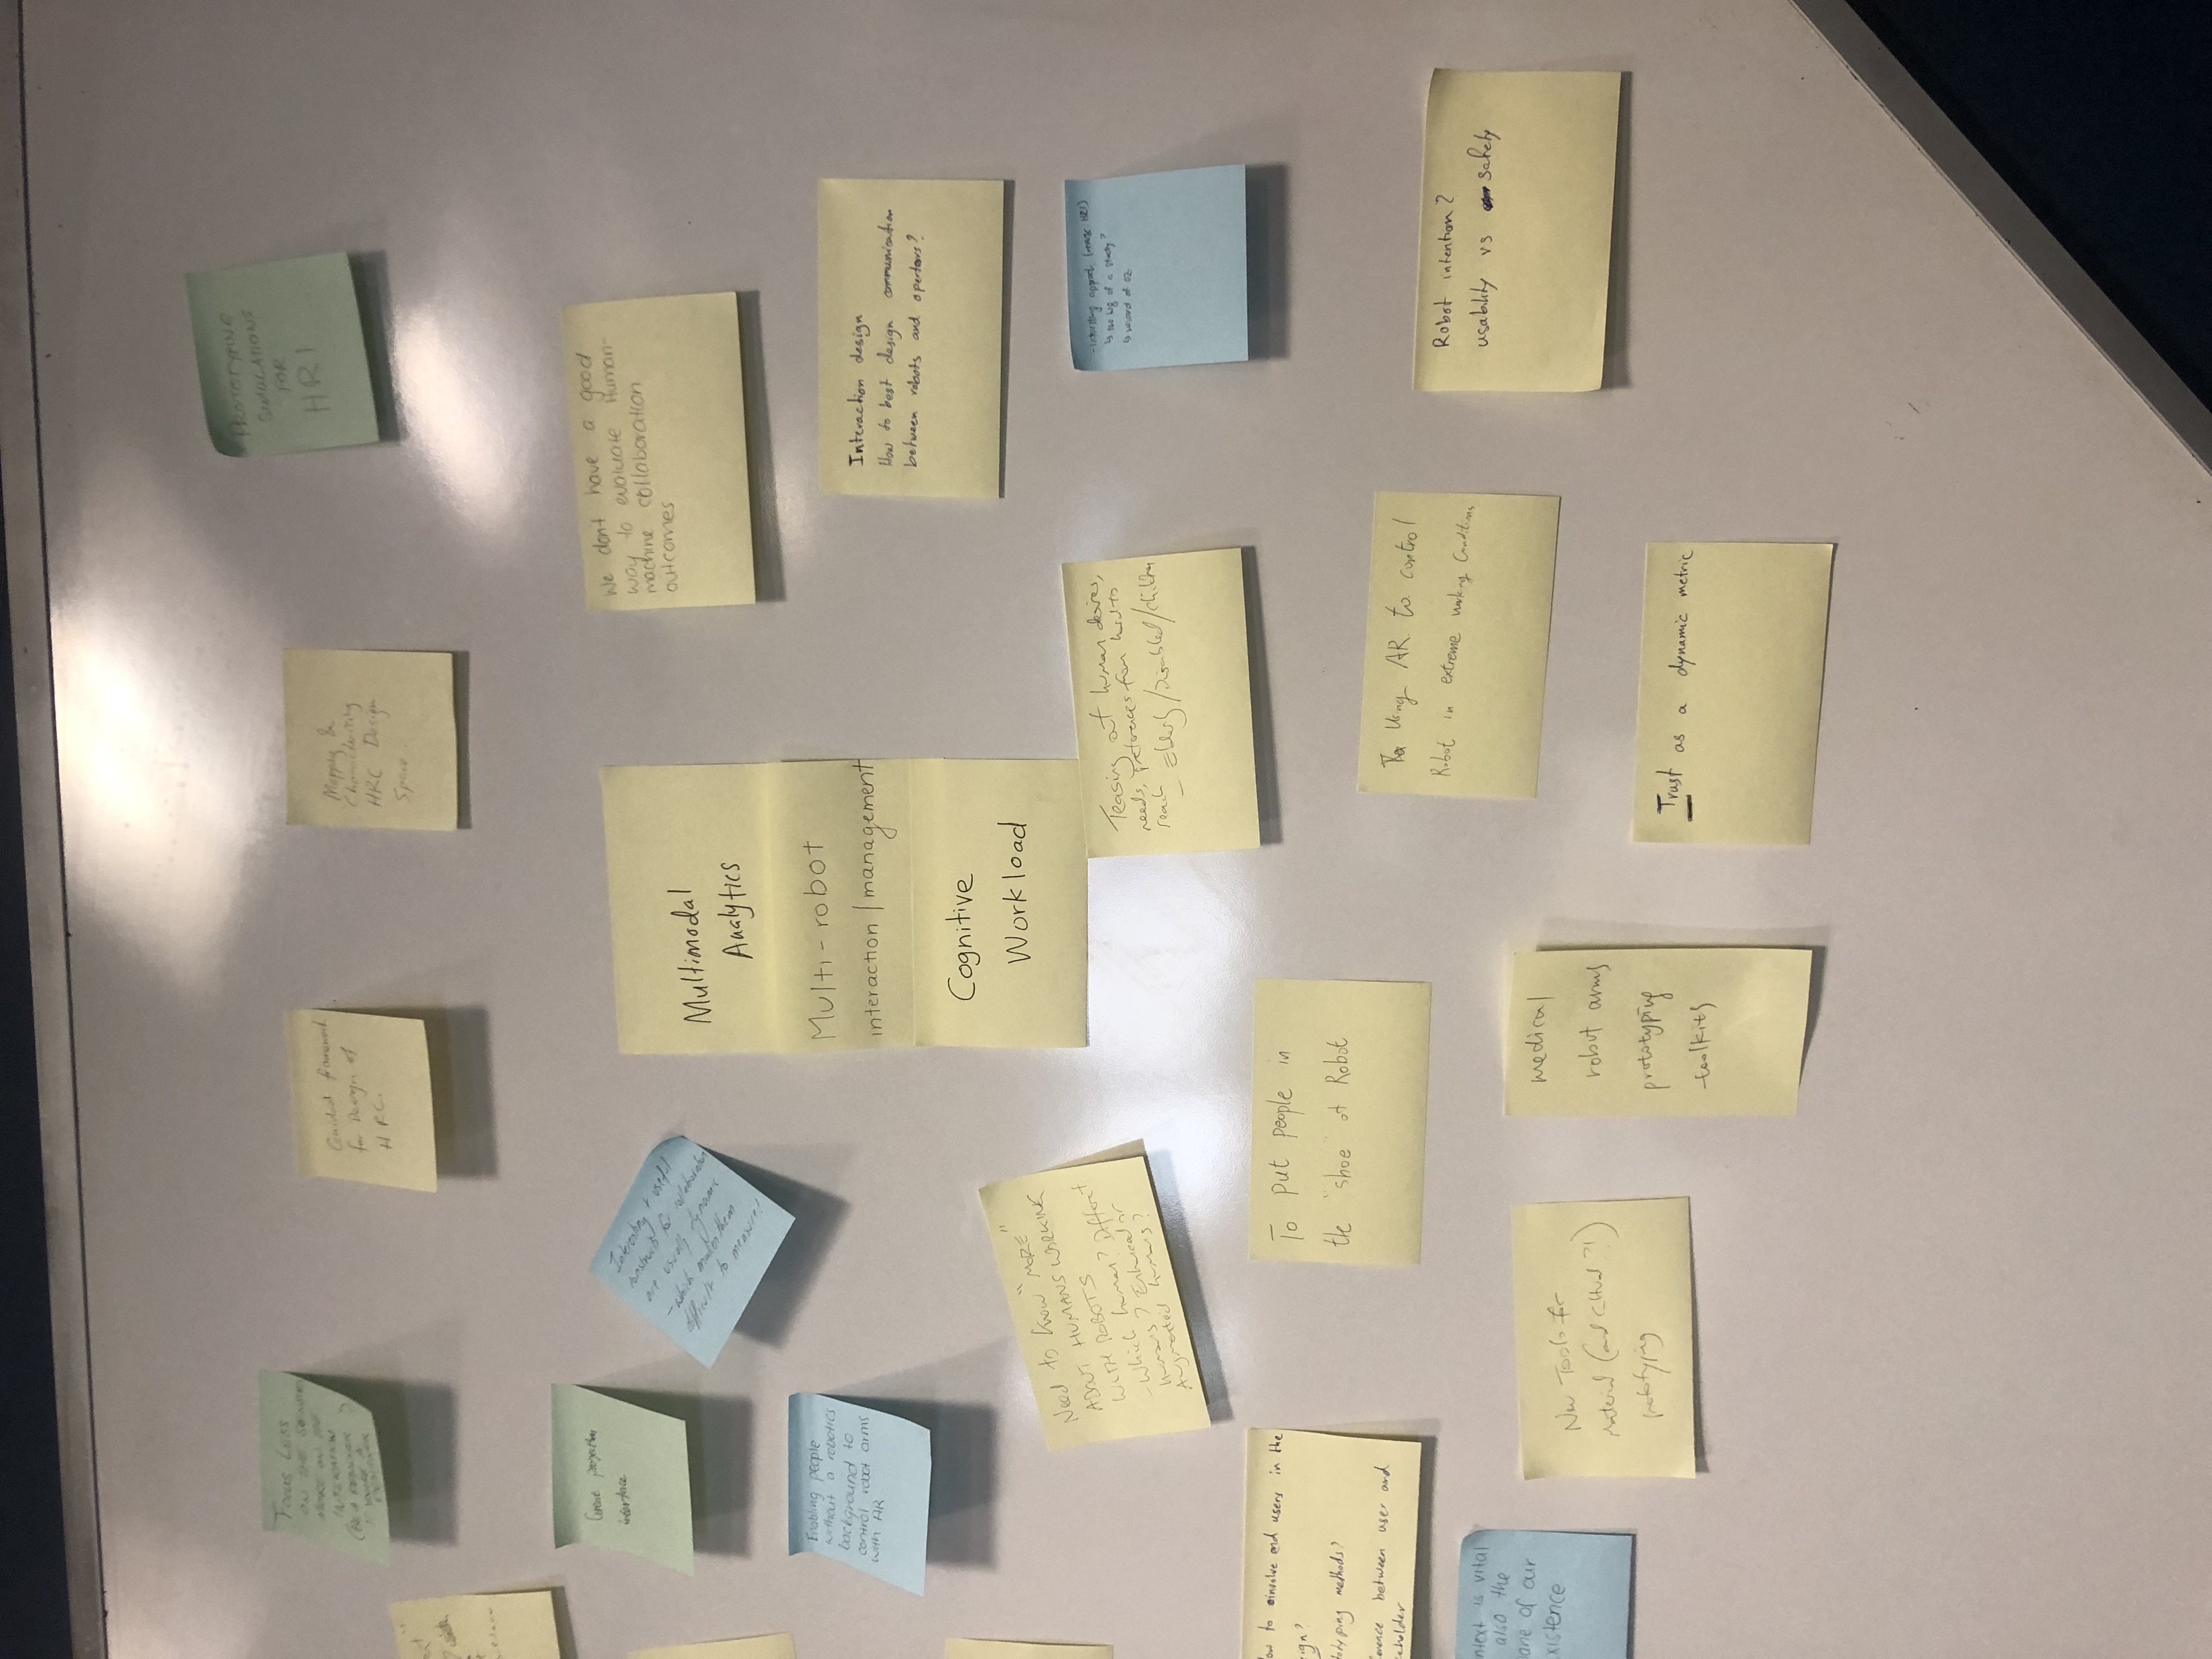 FOCUS LESS
ON THE
MORE ON THE
INTERATION
(BE A DESIGNER ?
DESIGNER
Guided framework
for Design of
HRC.
Mapping &
Characterising
HRC Design
Space.
PROTOTYPING
SIMULATIONS
FOR
HRI
Great projection
interface
Interesting + useful
constructs for collaboration
are usually dynamic
- which makes them
difficult to measure!
Enabling people
without a robotics
background to
control robot arms
with AR
Multimodal
Analytics
Multi-robot
interaction / management
Cognitive
Workload
We don't have a good
way to evaluate Human-
machine collaboration
outcomes
Interaction design
How to best design communication
between robots and opertors?
Need to know "MORE"
ABOUT HUMANS WORKING
WITH ROBOTS
- Which human? Different
humans? Enhanced or
Augmented humans?
Teasing out human desires,
needs, preferences from hard to
reach
- Elderly/Disabled/children
- Interesting (HRI)
↳ too big of a study?
↳ wizard of oz
ow to involve end users in the
ign?
totyping methods?
erence between user and
eholder
To put people in
the "shoe" of Robot
Using AR to control
Robot in extreme working Conditions
Robot intention?
usability vs safety
ntext is vital
also the
bane of our
existence
New Tools for
Material (and Cultural ?!)
prototyping
medical
robot arms
prototyping
toolkits
Trust as a dynamic metric